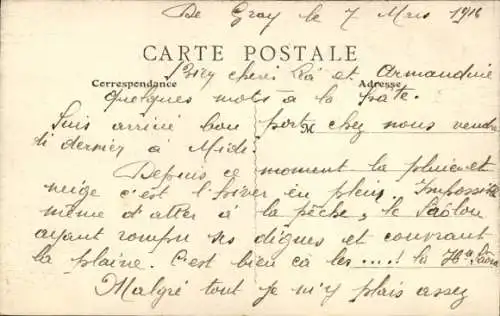 De Gray le 7 Mars 1916
CARTE POSTALE
Correspondance
Adresse
chéris et Armandine
Quelques mots à la hâte.
Suis arrivé bon port chez nous vendre
di dernier à Midi.
M
Depuis ce moment la pluie et
neige c'est l'hiver en plein. Impossible
même d'aller à la pêche, le Saôlon
ayant rompu ses digues et couvrant
la plaine. C'est bien ça les ....! la Hte Saône
Malgré tout je m'y plais assez